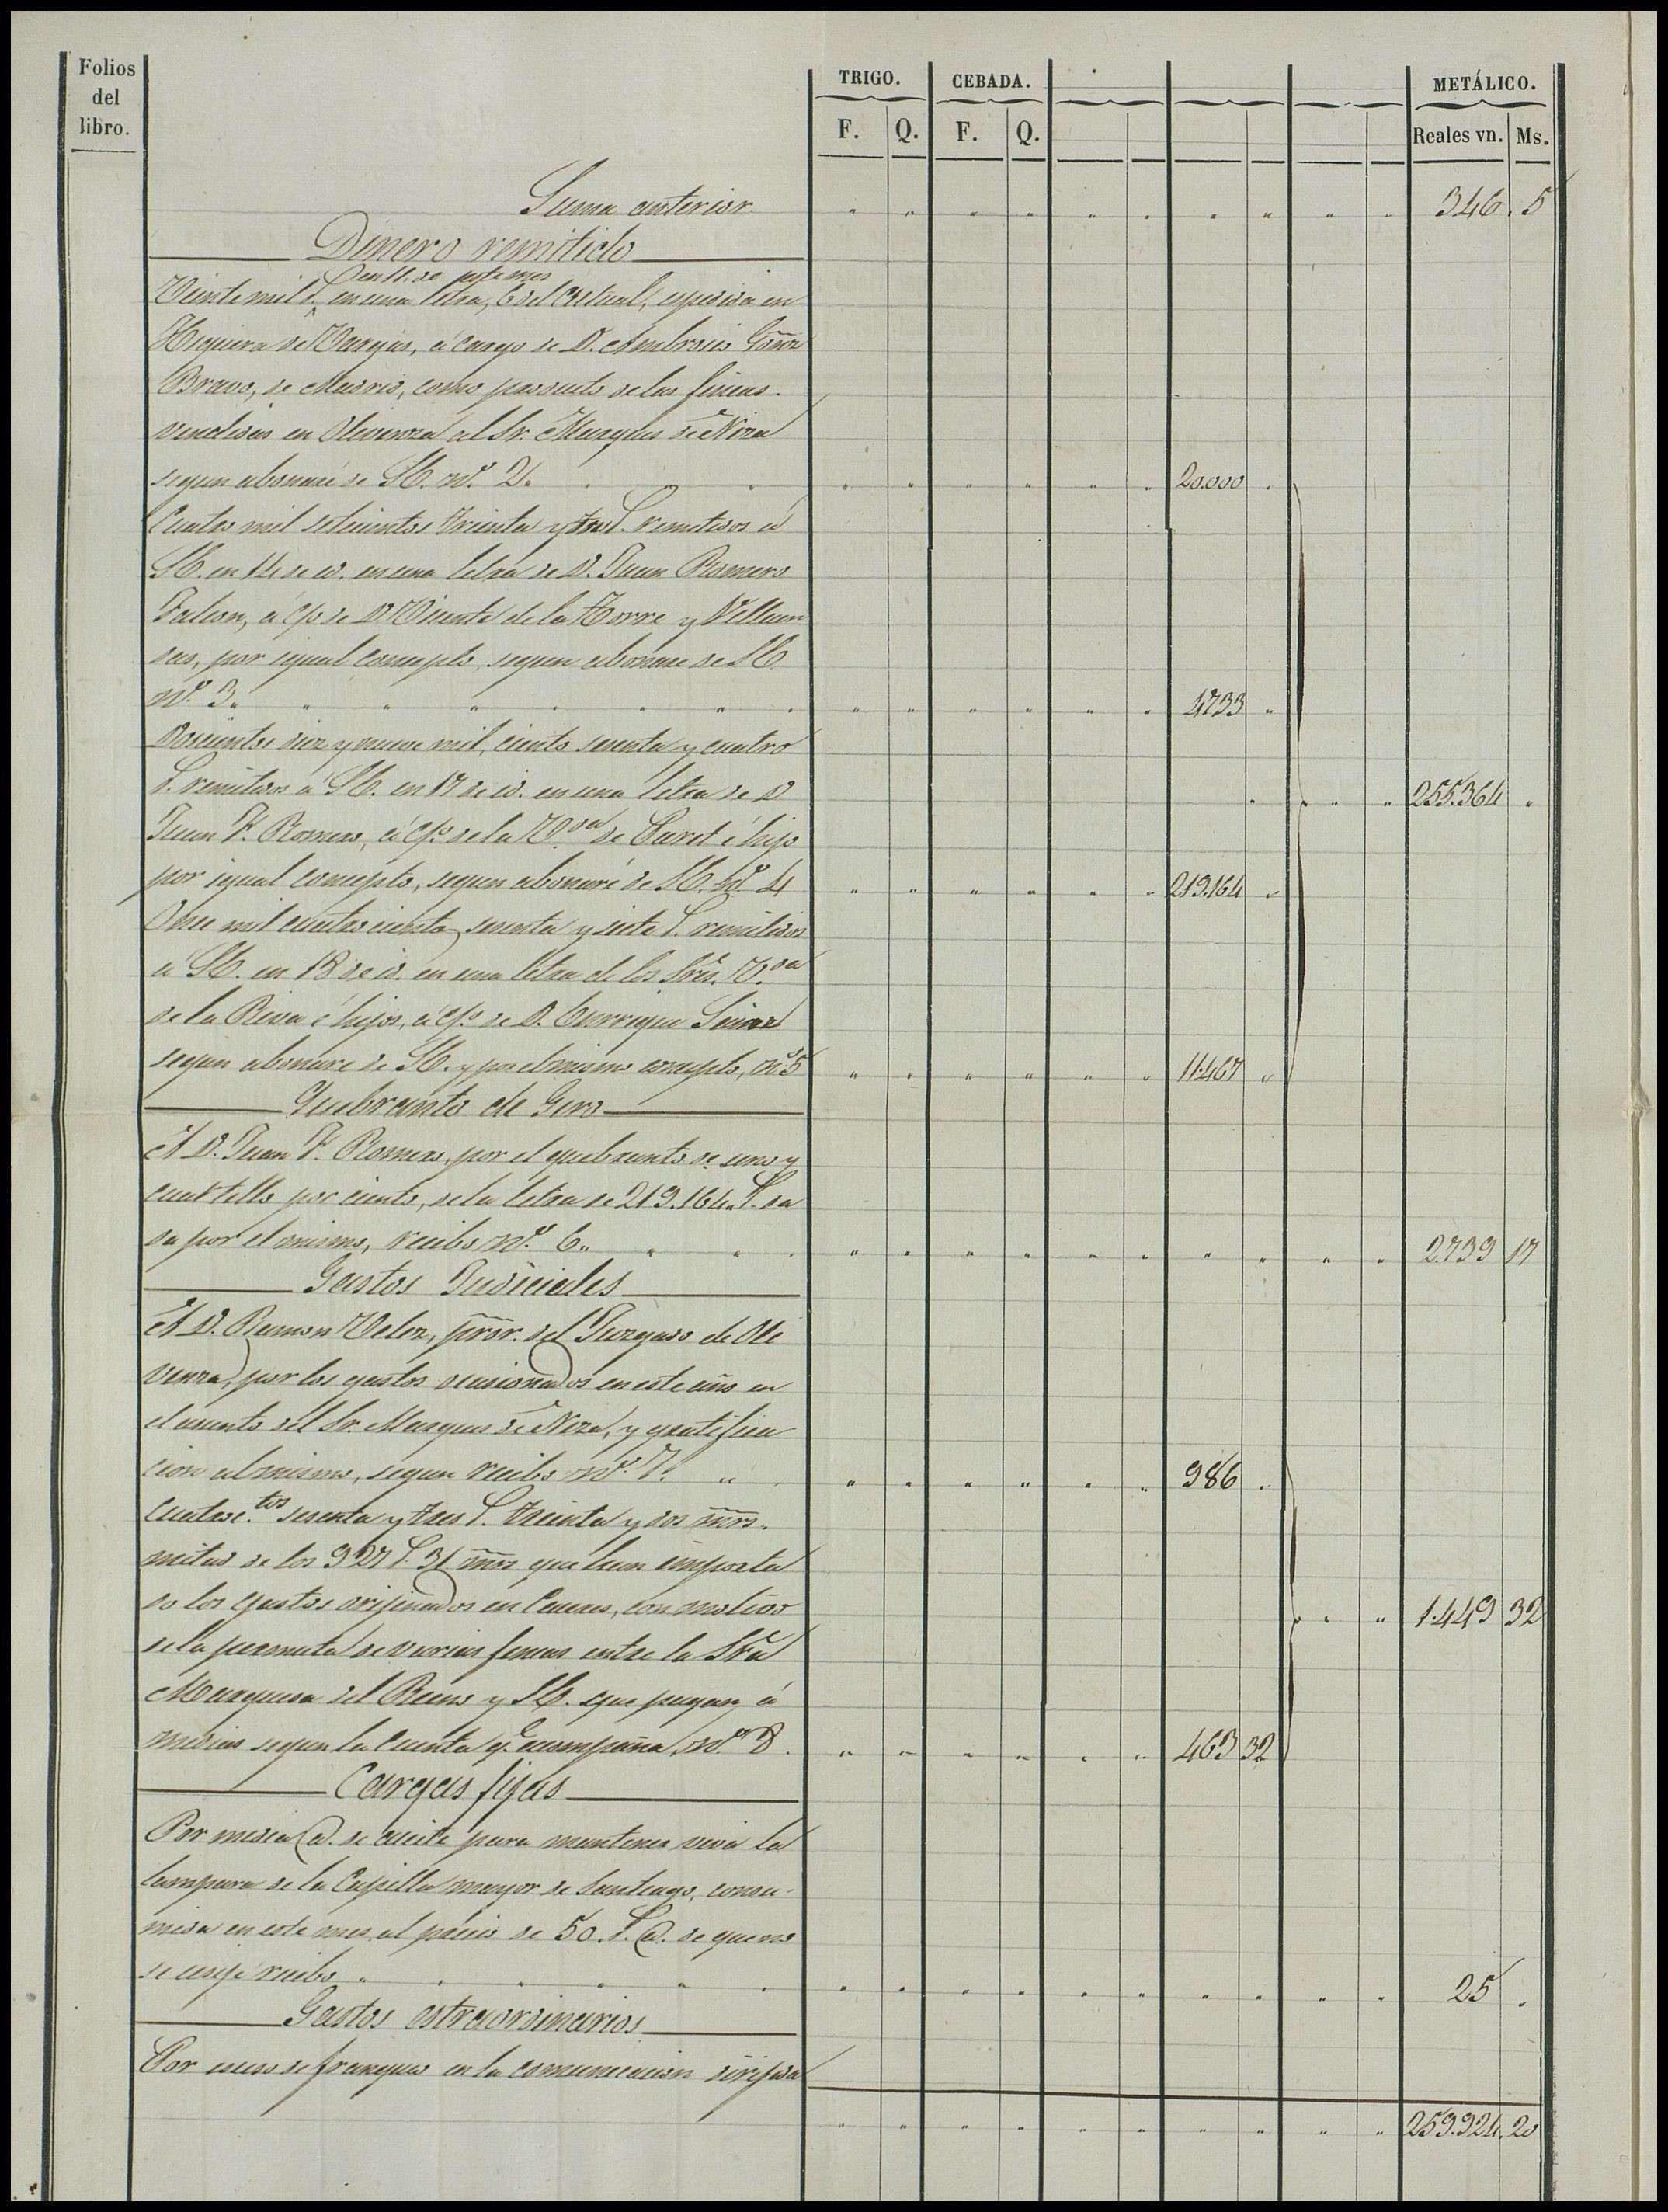 Folios
del
libro.
TRIGO. CEBADA. METÁLICO.
F. Q. F. Q. Reales vn. Ms.
Suma anterior " " " " " " " " " " 346. 5
Dinero remitido
en 11. de este mes
Veinte mil r. en una letra, 6 del actual, espedida en
Higuera de Vargas, á cargo de D. Ambrosio Gonz
Bravo, de Madrid, como producto de las fincas
vendidas en Olivenza al Sr. Marques de Niza
segun abonaré de SE. nº. 2. " " " " " " 20.000 "
Cuatro mil setecientos treinta y tres r. remitidos á
SE. en 14 de id. en una letra de D. Juan Romero
Falcon, á c/o de D. Vicente de la Torre y Villaun
das, por igual concepto, segun abonare de SE
nº. 3. " " " " " " " " " " " " 4733 "
Doscientos diez y nueve mil, ciento sesenta y cuatro
r. remitidos á SE. en 17 de id. en una letra de D
" " " " 255.364 "
Juan F. Romero, á c/o. de la V.da de Caret é hijo
por igual concepto, segun abonaré de SE. nº. 4 " " " " " " 219.164 "
Once mil cuatrocientos sesenta y siete r. remitidos
á SE. en 18 de id. en una letra de los Sres. V.da
de la Riva é hijos, á c/o. de D. Enrrique Sainz
segun abonare de SE. y por el mismo concepto, nº 5 " " " " " " 11.467 "
Quebranto de Giro
A D. Juan F. Romero, por el quebranto de uno y
cuartillo por ciento, de la letra de 219.164. r. da
da por el mismo, recibo nº. 6. " " " " " " " " " " " " 2739 17
Gastos Judiciales
A D. Ramon Velez, prôr. del Juzgado de Oli
venza, por los gastos ocasionados en este año en
el asunto del Sr. Marques de Niza, y gratifica
cion al mismo, segun recibo nº. 7. " " " " " " " 986 "
Cuatroc.tos sesenta y tres r. treinta y dos mrs.
mitad de los 927 r. 31 mrs que han importa
do los gastos orijinados en Caceres, con motivo " " " 1.449 32
de la permuta de varias fincas entre la Sra
Marquesa del Reino y SE. que pagan á
medias segun la cuenta q.e acompaña, nº. 8. " " " " " " 463 32
Cargas fijas
Por media @. de aceite para mantener viva la
lampara de la Capilla mayor de Santiago, consu-
mida en este mes, al precio de 50. r. @. de que no
se exije recibo " " " " " " " " " " " " " " " 25 "
Gastos estraordinarios
Por esceso de franqueo en la comunicacion dirijida
" " " " " " " " " " 259.924. 20